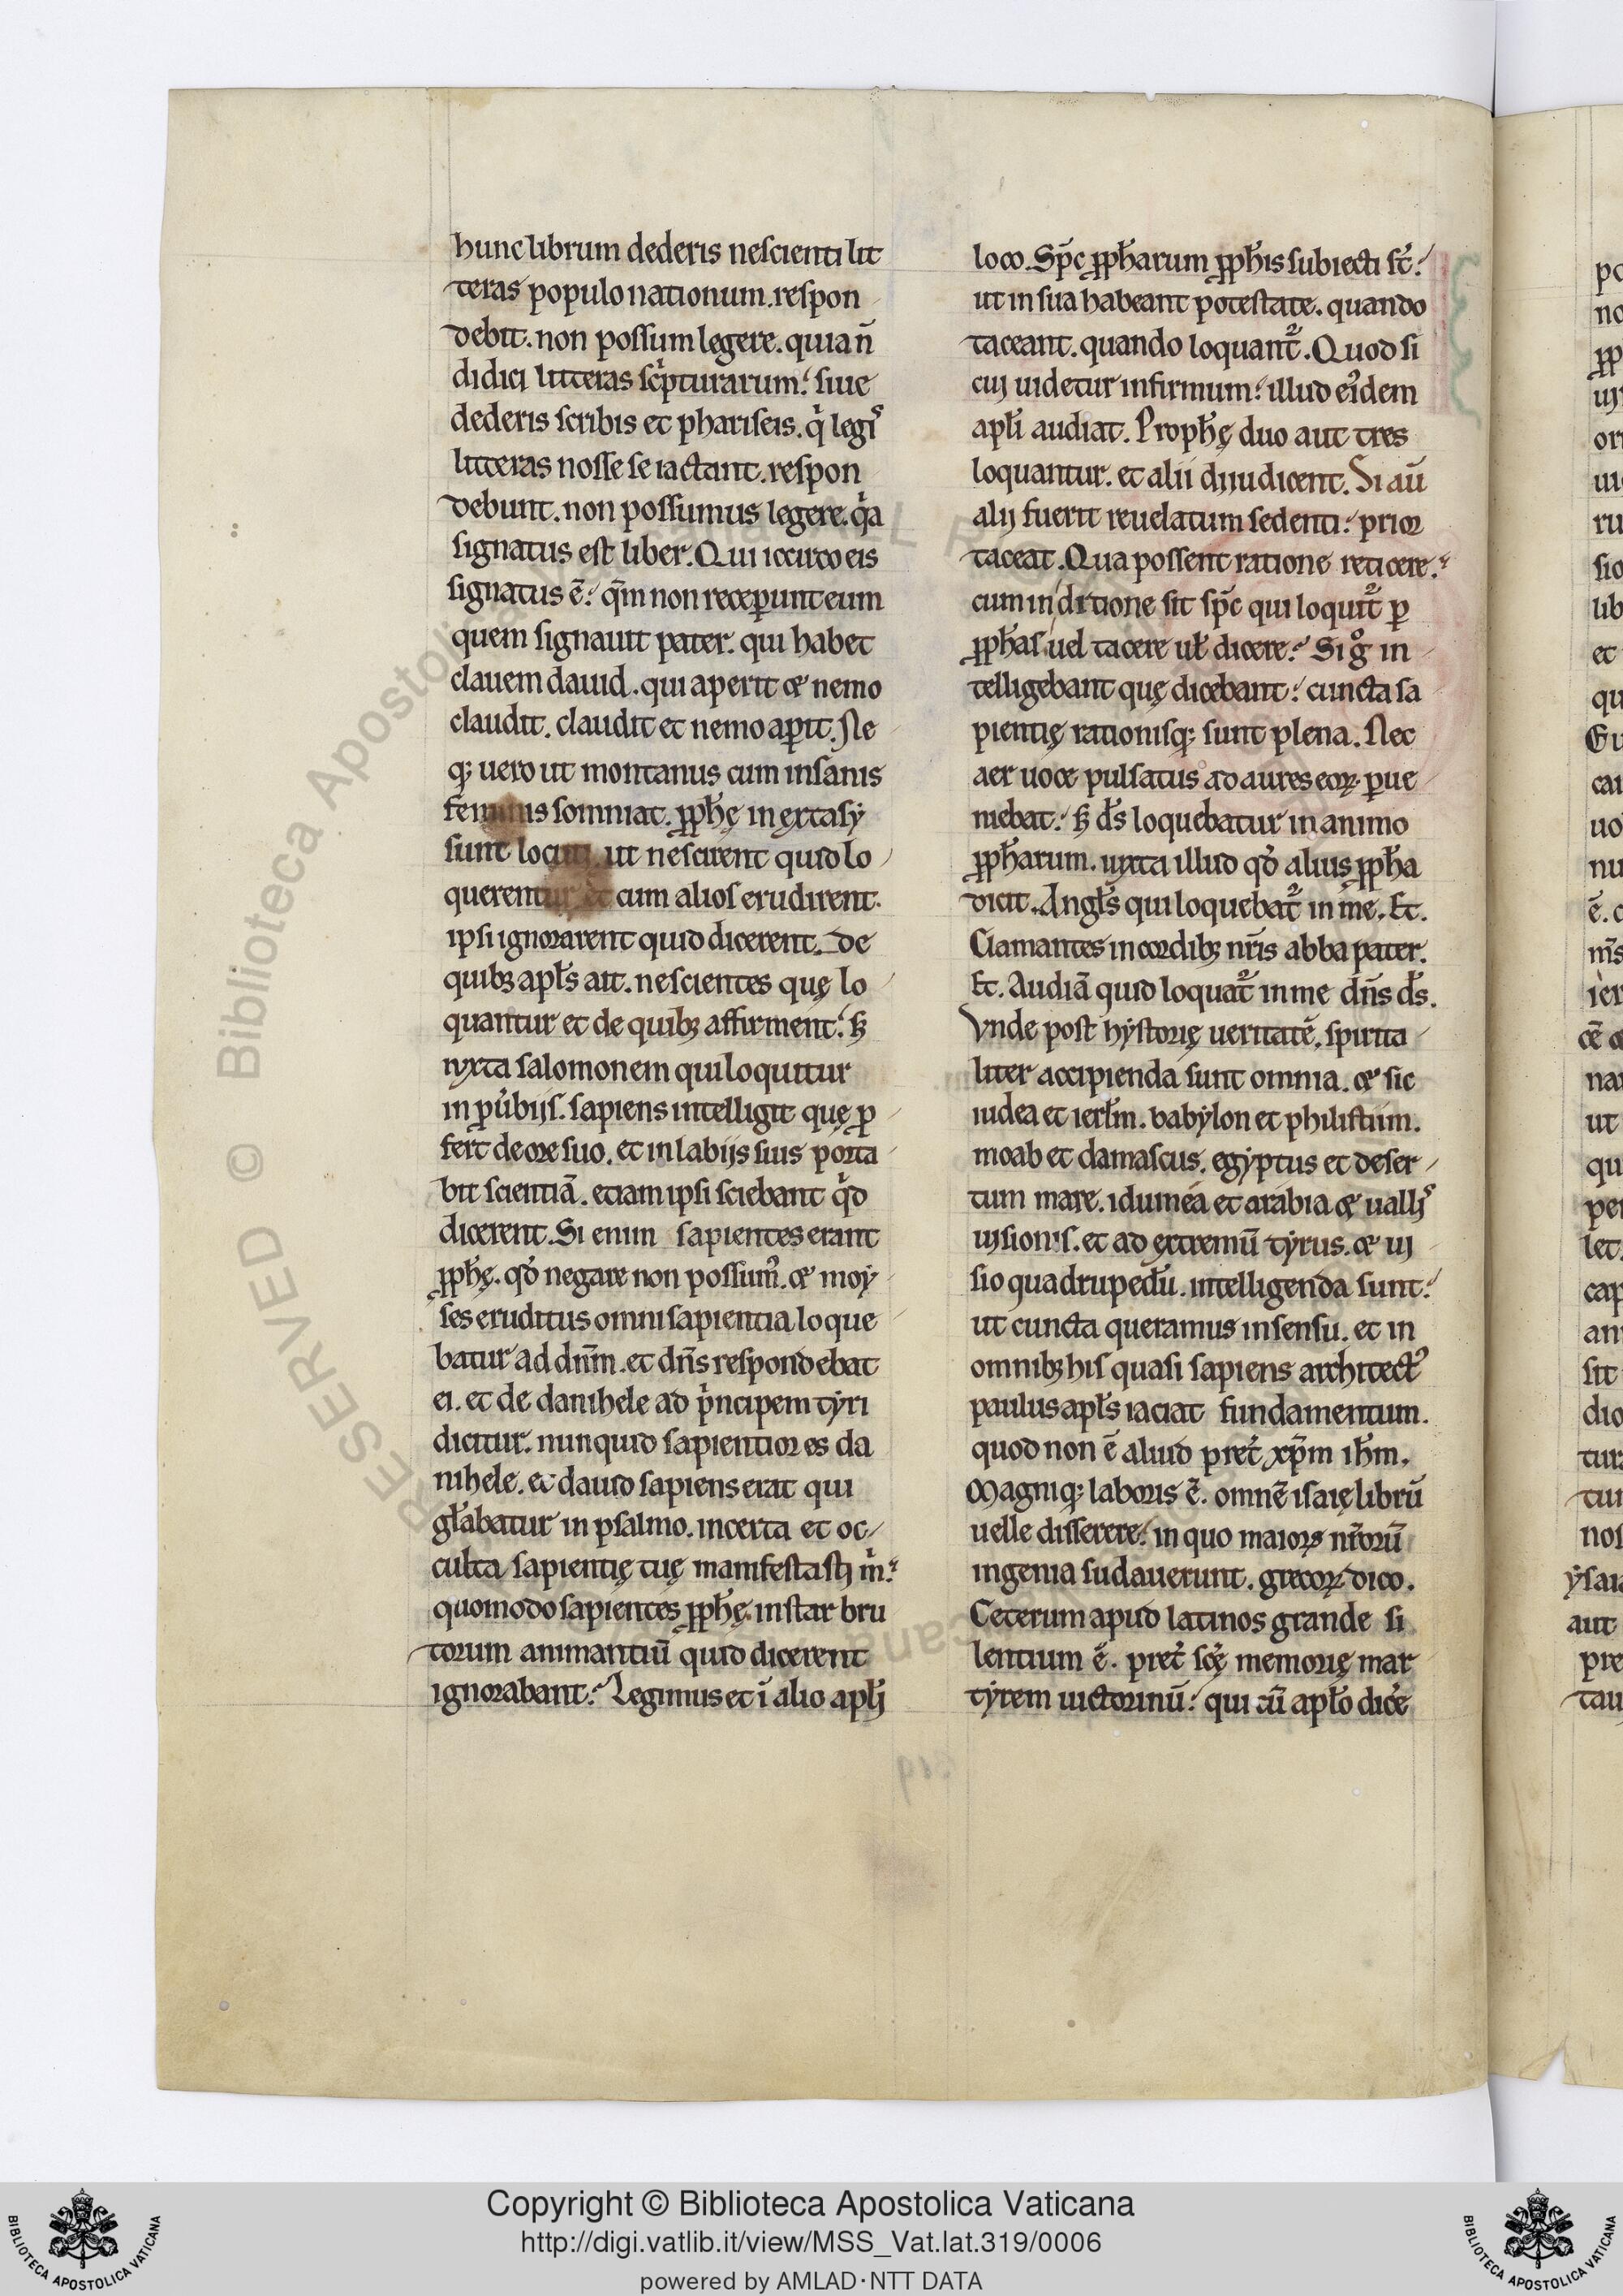 hunc librum dederis nescienti lit
teras populo nationum. respon
debit. non possum legere. quia n̄
didici litteras sc̓pturarum. siue
dederis scribis et phariseis. q̇ legis
litteras nosse se iactant. respon
debunt. non possumus legere. q̇a
signatus est liber. Qui iccirco eis
signatus ē. qm̄ non receperunt eum
quem signauit pater. qui habet
clauem dauid. qui aperit & nemo
claudit. claudit et nemo apit. Ne
q; uero ut montanus cum insanis
feminis somniat. ꝓph̄ę in ęxtasy
sunt locuti. ut nescirent quid lo
querentur et cum alios erudirent.
ipsi ignorarent quid dicerent. De
quibꝫ apl̄s ait. nescientes quę lo
quantur et de quibꝫ affirment. ꝫ
iuxta salomonem qui loquitur
in pu̇biis. sapiens intelligit quę ꝓ
fert de ore suo. et in labiis suis porta
bit scientiā. etiam ipsi sciebant q̇d
dicerent. Si enim sapientes erant
ꝓph̄ę. qd̓ negare non possum᷒. & moy
ses eruditus omni sapientia loque
batur ad dn̄m. et dn̄s respondebat
ei. et de danihele ad p̓ncipem tyri
dicitur. nunquid sapientior es da
nihele. et dauid sapiens erat qui
gl̄abatur in psalmo. incerta et oc
culta sapientię tuę manifestasti m̓.
quomodo sapientes ꝓph̄ę. instar bru
torum animantiū quid dicerent
ignorabant. Legimus et ī alio apli
loco. Sp̄c ꝓph̄arum ꝓph̄is subiecti st̄.
ut in sua habeant potestate. quando
taceant. quando loquant᷑. Quod si
cui uidetur infirmum. illud ei᷒dem
apl̄i audiat. Proph̄ę duo aut tres
loquantur. et alii diiudicent. Si aū
alii fuerit reuelatum sedenti. prior
taceat. Qua possent ratione reticere.
cum in ditione sit sp̄c qui loquit᷑ ꝑ
ꝓph̄as uel tacere ul̄ dicere. Si gͦ in
telligebant quę dicebant. cuncta sa
pientię rationisq; sunt plena. Nec
aer uoce pulsatus ad aures eoꝝ ꝑue
niebat. ꝫ ds̄ loquebatur in animo
ꝓph̄arum. iuxta illud qd̓ alius ꝓph̄a
dicit. Angl̄s qui loquebat᷑ in me. Et.
Clamantes in cordibꝫ nr̄is abba pater.
Et. Audiā quid loquat᷑ in me dn̄s ds̄.
Vnde post hystorię ueritatē. spirita
liter accipienda sunt omnia. & sic
iudea et ierl̄m. babylon et philistiim.
moab et damascus. egyptus et deser
tum mare. idumea et arabia & uallis
uisionis. et ad ęxtremū tyrus. & ui
sio quadrupedū. intelligenda sunt.
ut cuncta queramus in sensu. et in
omnibꝫ his quasi sapiens architect᷒
paulus apl̄s iaciat fundamentum.
quod non ē aliud pret̓ xp̄m ih̄m.
Magniq; laboris ē. omnē isaię librū
uelle disserere. in quo maioꝝ nr̄orū
ingenia sudauerunt. grecoꝝ dico.
Ceterum apud latinos grande si
lentium ē. pret̓ scę̄ memorię mar
tyrem uictorinū. qui cū apl̄o dice̓
Copyright © Biblioteca Apostolica Vaticana
http://digi.vatlib.it/view/MSS_Vat.lat.319/0006
powered by AMLAD·NTT DATA